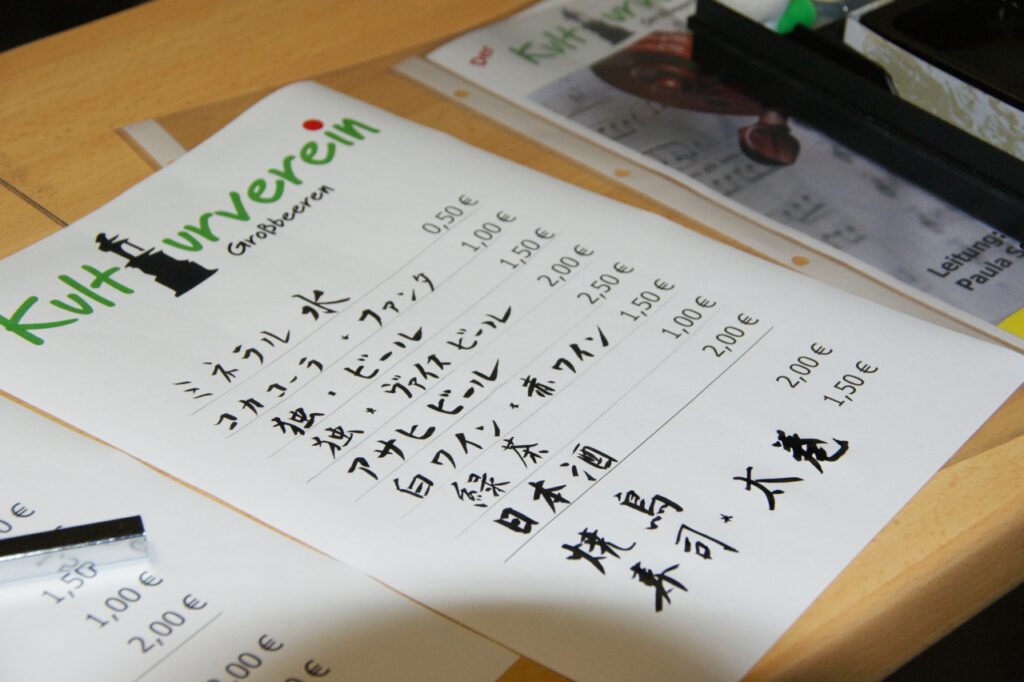 Kulturverein
Großbeeren
ミネラル水 0,50 €
コカコーラ・ファンタ 1,00 €
独・ビール 1,50 €
独・ヴァイスビール 2,00 €
アサヒビール 2,50 €
白ワイン・赤ワイン 1,50 €
緑茶 1,00 €
日本酒 2,00 €
焼鳥 2,00 €
寿司・太巻 1,50 €
Der Kult
Großbeere
Leitung:
Paula S
0 €
1,50
1,00 €
2,00 €
2,00 €
€